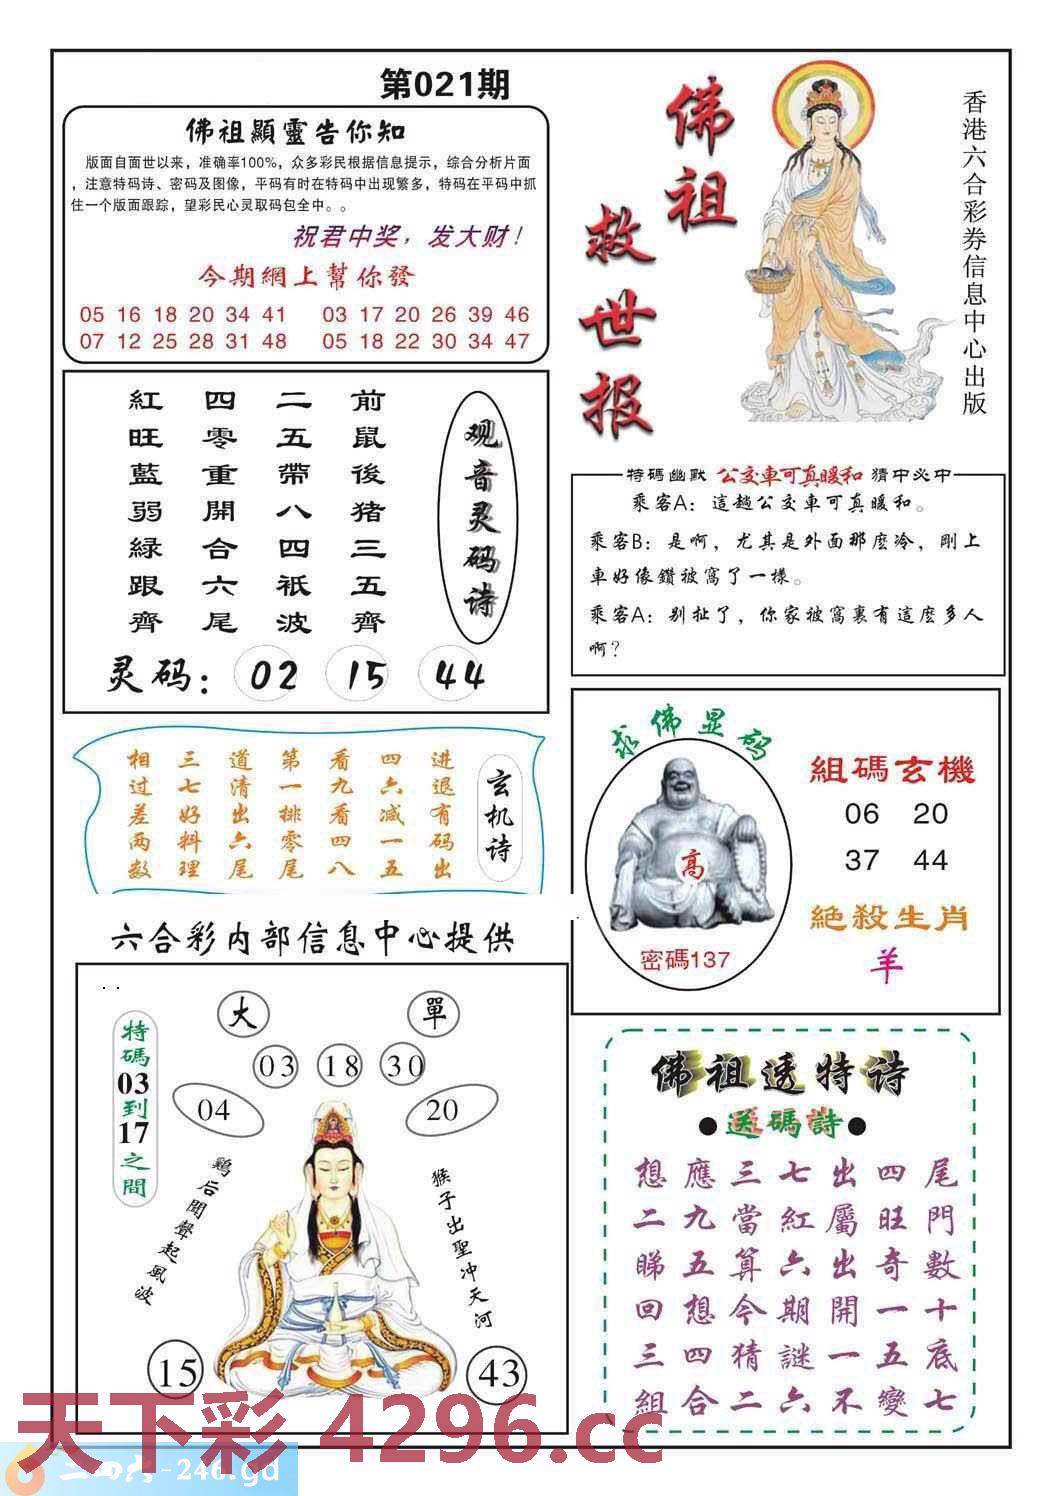 第021期
佛祖顯靈告你知
版面自面世以来，准确率100%，众多彩民根据信息提示，综合分析片面
，注意特码诗、密码及图像，平码有时在特码中出现繁多，特码在平码中抓
住一个版面跟踪，望彩民心灵取码包全中。。
祝君中奖，发大财！
今期網上幫你發
05 16 18 20 34 41 03 17 20 26 39 46
07 12 25 28 31 48 05 18 22 30 34 47
佛祖
救世报
香港六合彩券信息中心出版
观音灵码诗
前鼠後猪三五齊
二五帶八四祇波
四零重開合六尾
紅旺藍弱緑跟齊
灵码：02 15 44
特碼幽默 公交車可真暖和 猜中必中
乘客A：這趟公交車可真暖和。
乘客B：是啊，尤其是外面那麽冷，剛上
車好像鑽被窩了一樣。
乘客A：别扯了，你家被窩裏有這麽多人
啊？
玄机诗
进退有码出
四六减一五
看九看四八
第一排零尾
道清出六尾
三七好料理
相过差两数
求佛显码
高
密碼137
組碼玄機
06 20
37 44
絶殺生肖
羊
六合彩内部信息中心提供
特碼03到17之間
大 單
03 18 30
04 20
鷄后聞聲起風波
猴子出聖冲天河
15 43
佛祖透特诗
●送碼詩●
想應三七出四尾
二九當紅屬旺門
睇五算六出奇數
回想今期開一十
三四猜謎一五底
組合二六不變七
天下彩 4296.cc
二四六-246.gd